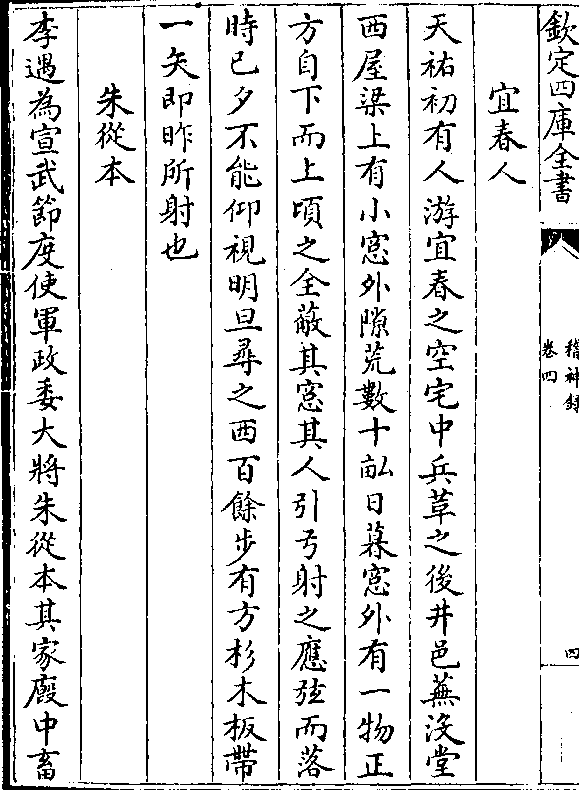 欽定四庫全書
稽神録
卷四
四
宜春人
天祐初有人游宜春之空宅中兵革之後井邑蕪没堂
西屋梁上有小窓外隙荒數十畝日暮窓外有一物正
方自下而上頃之全蔽其窓其人引弓射之應弦而落
時已夕不能仰視明旦尋之西百餘步有方杉木板帶
一矢即昨所射也
朱從本
李遇為宣武節度使軍政委大將朱從本其家廄中畜